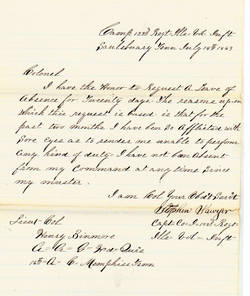 Camp 122d Regt Ills. Vol. Inft
Saulsbury Tenn July 18th 1863
Colonel
I have the Honor to Request A Leave of
Absence for Twenty days. The reasons upon
which this request is based is that for the
past two months I have ben So Afflicted with
Sore eyes as to render me unable to perform
Any kind of duty I have not ben Absent
from my Command at any time Since
my muster.
I am Col Your Obdt Servt
Stephen Sawyer
Lieut Col
Capt Co 122d Regt
Henry Binmore
Ills. Vol. Inft
A. A. G.
16th A. C. Memphis Tenn